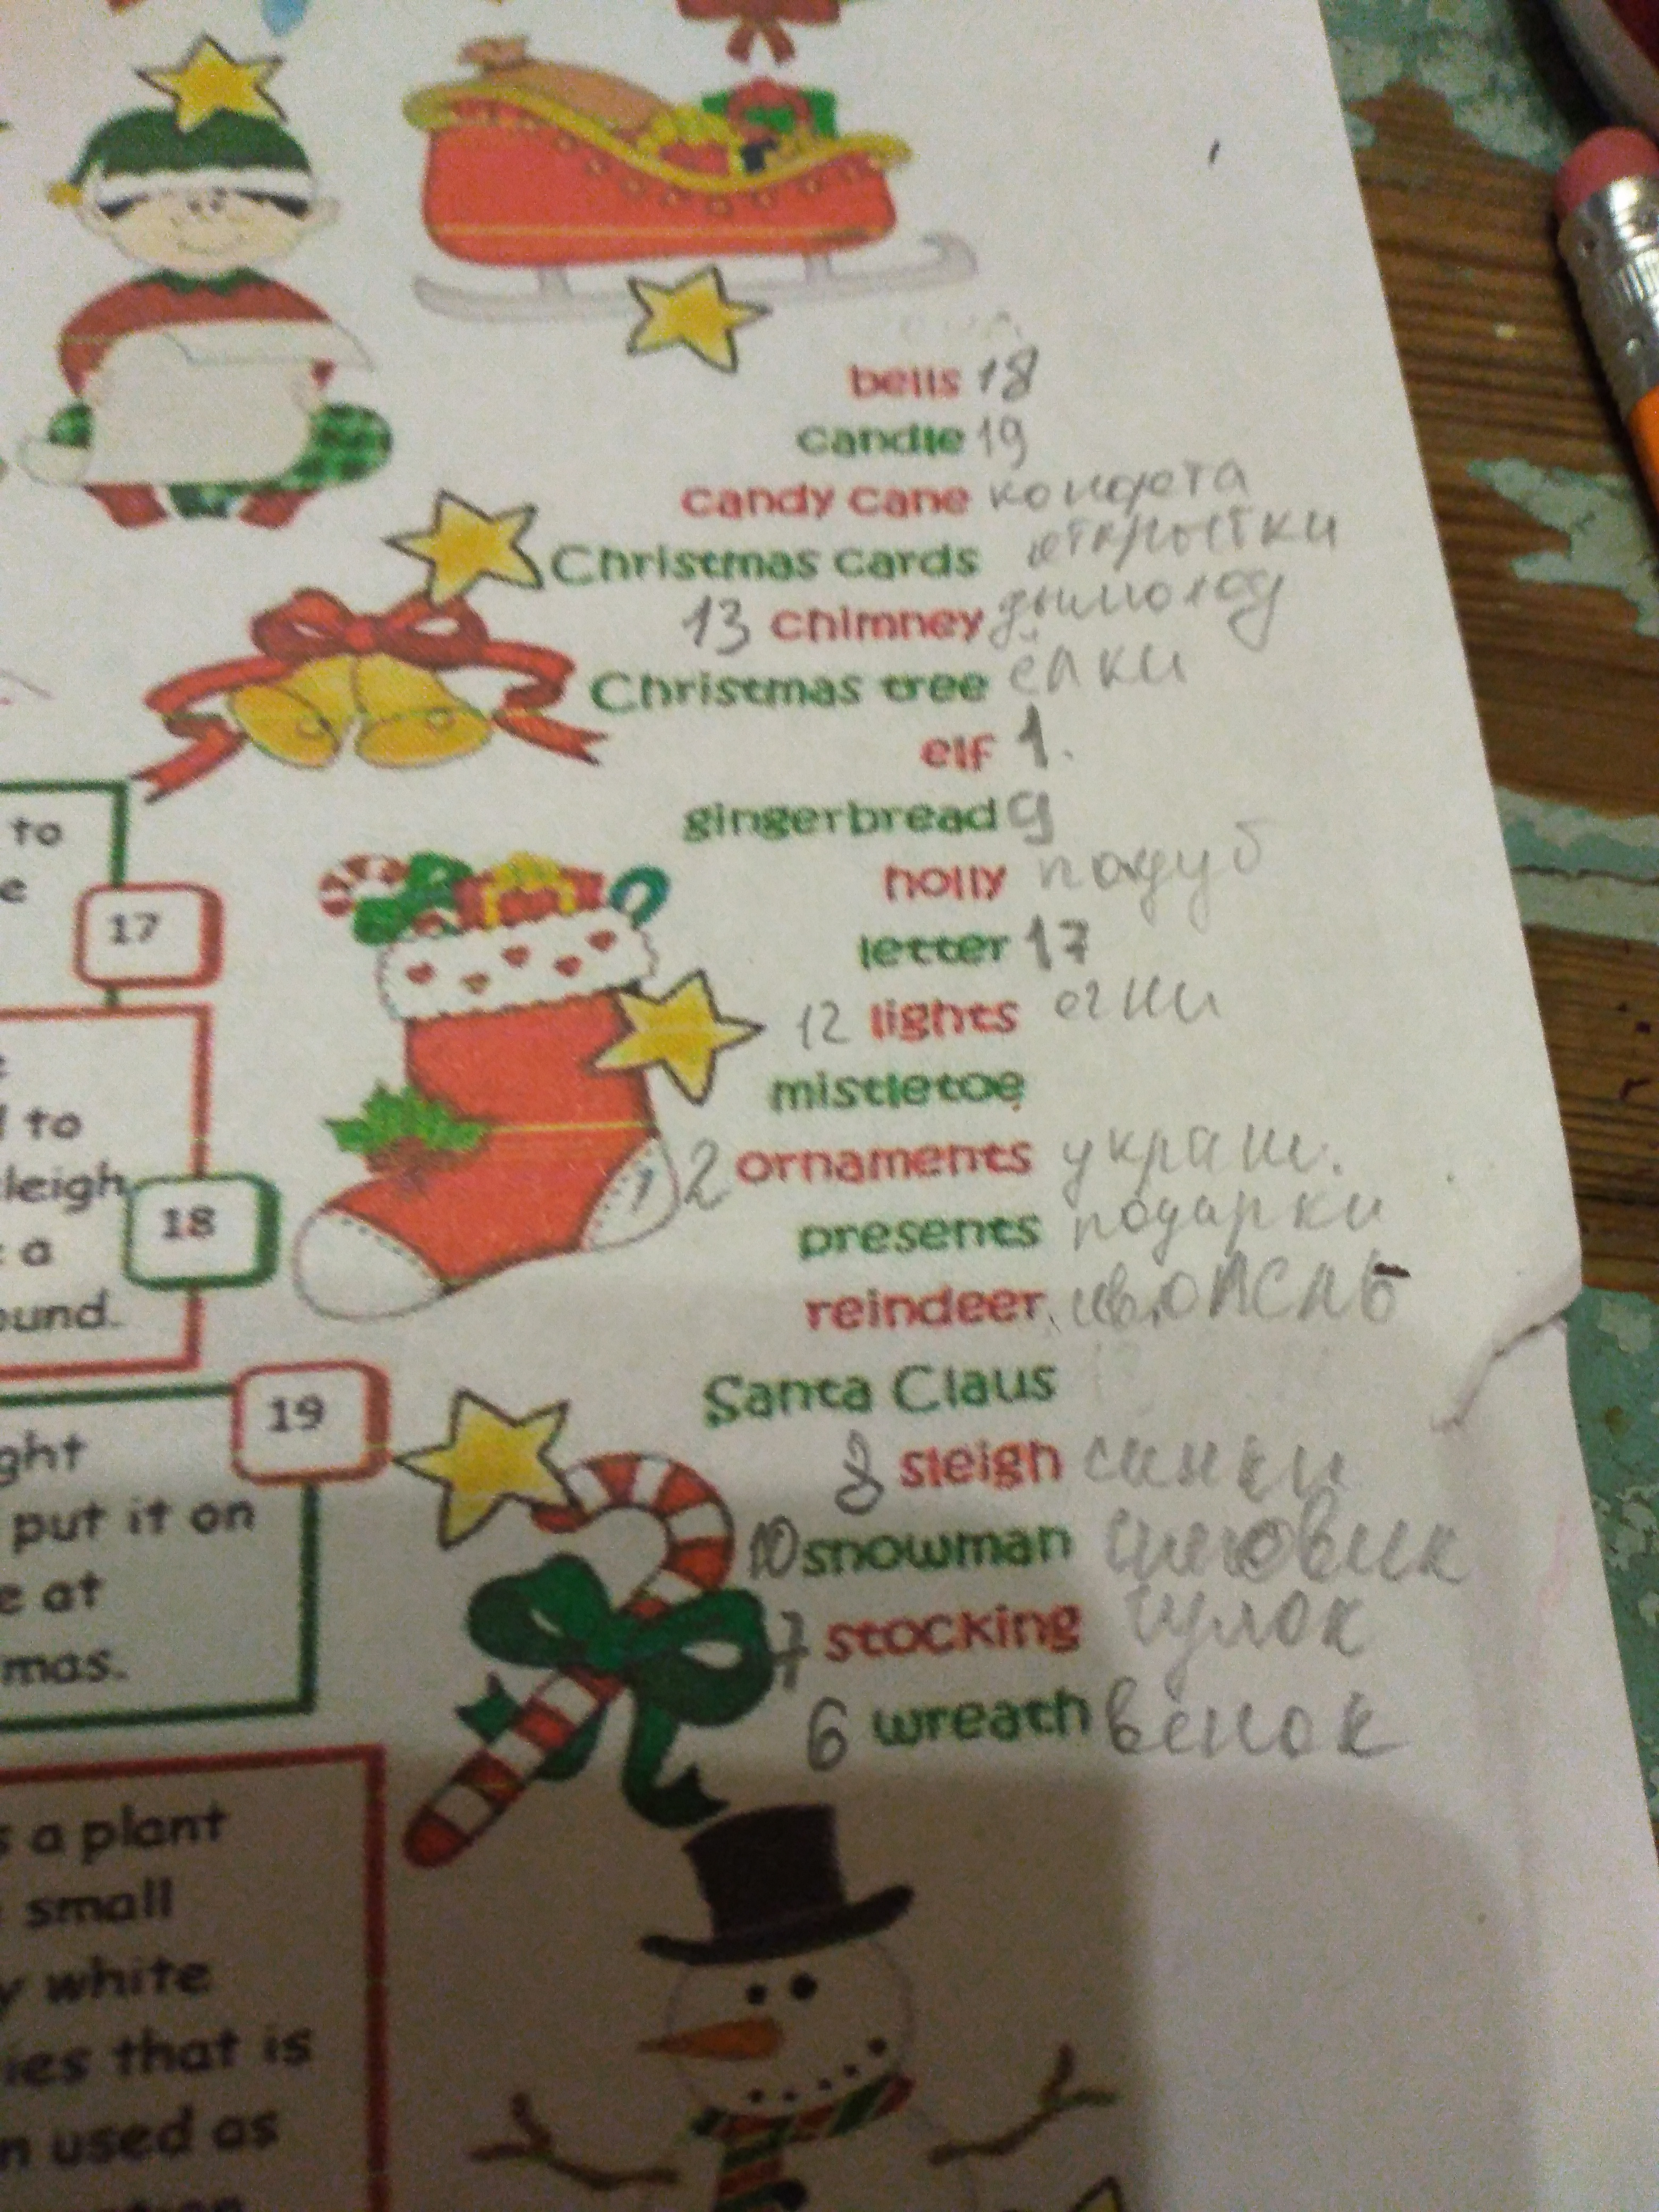 bells 18
candle 19
candy cane конфета
Christmas cards открытки
13 chimney дымоход
Christmas tree ёлки
elf 1.
gingerbread 9
holly падуб
letter 17
12 lights огни
mistletoe
2 ornaments украш.
presents подарки
reindeer
Santa Claus
8 sleigh санки
10 snowman снеговик
7 stocking чулок
6 wreath венок
to
e
17
to
leigh
a
ound.
18
19
ght
put it on
e at
mas.
s a plant
small
y white
ies that is
n used as